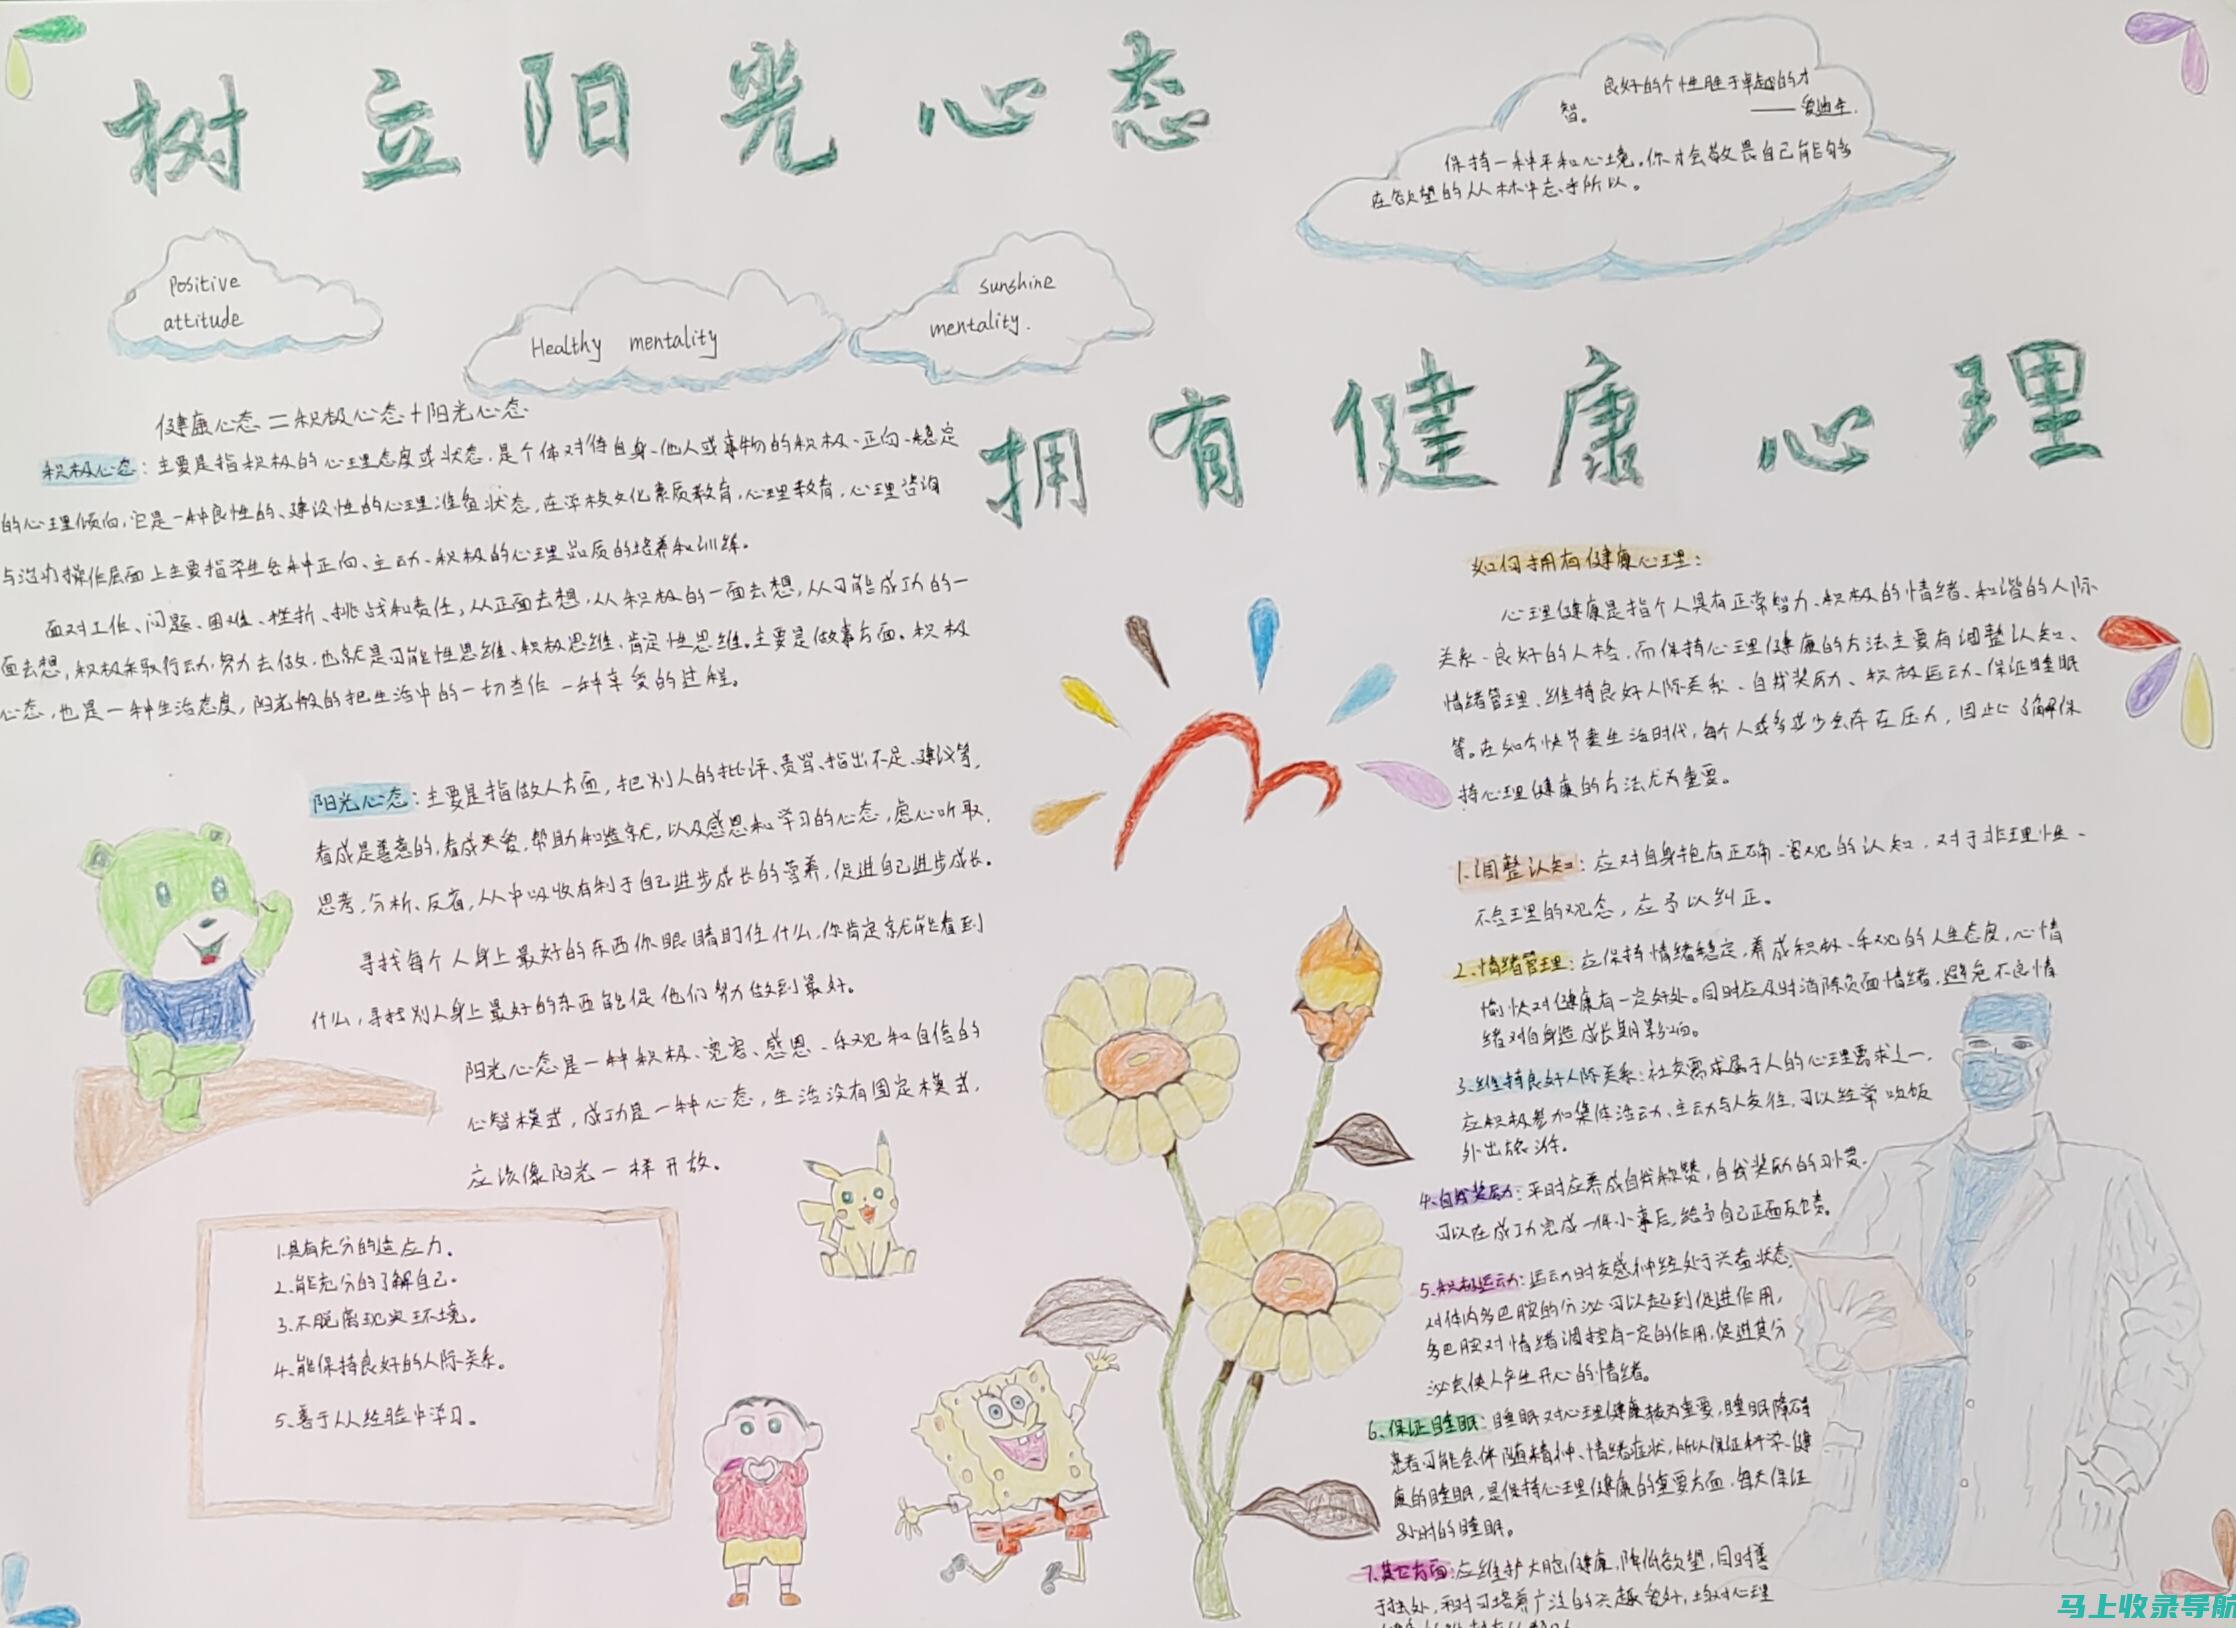 树立阳光心态
良好的个性胜于卓越的才
智。 ——爱迪生.
保持一种平和心境,你才会敬畏自己能够
在欲望的丛林中忘乎所以。
Positive
attitude
Healthy mentality
sunshine
mentality.
拥有健康心理
健康心态=积极心态+阳光心态
积极心态:主要是指积极的心理态度或状态,是个体对待自身、他人或事物的积极、正向、稳定
的心理倾向,它是一种良性的、建设性的心理准备状态,在学校文化素质教育,心理教育,心理咨询
与活动操作层面上主要指学生各种正向、主动、积极的心理品质的培养和训练。
面对工作、问题、困难、挫折、挑战和责任,从正面去想,从积极的一面去想,从可能成功的一
面去想,积极采取行动,努力去做,也就是可能性思维、积极思维、肯定性思维。主要是做事方面。积极
心态,也是一种生活态度,阳光般的把生活中的一切当作一种享受的过程。
阳光心态:主要是指做人方面,把别人的批评、责骂、指出不足、建议等,
看成是善意的,看成关爱,帮助和造就,以及感恩和学习的心态,虚心听取,
思考,分析、反省,从中吸收有利于自己进步成长的营养,促进自己进步成长。
寻找每个人身上最好的东西你眼睛盯住什么,你肯定就能看到
什么,寻找别人身上最好的东西能促他们努力做到最好。
阳光心态是一种积极、宽容、感恩、乐观和自信的
心智模式,成功是一种心态,生活没有固定模式,
应该像阳光一样开放。
1.具有充分的适应力。
2.能充分的了解自己。
3.不脱离现实环境。
4.能保持良好的人际关系。
5.善于从经验中学习。
如何拥有健康心理:
心理健康是指个人具有正常智力、积极的情绪、和谐的人际
关系、良好的人格,而保持心理健康的方法主要有调整认知、
情绪管理、维持良好人际关系、自我奖励、积极运动、保证睡眠
等。在如今快节奏生活时代,每个人或多或少会存在压力,因此了解保
持心理健康的方法尤为重要。
1.调整认知:应对自身抱有正确、客观的认知,对于非理性、
不合理的观念,应予以纠正。
2.情绪管理:应保持情绪稳定,养成积极、乐观的人生态度,心情
愉快对健康有一定好处。同时应及时消除负面情绪,避免不良情
绪对自身造成长期影响。
3.维持良好人际关系:社交需求属于人的心理需求之一,
应积极参加集体活动、主动与人交往,可以经常吃饭
外出旅游。
4.自我奖励:平时应养成自我称赞,自我奖励的习惯,
可以在成功完成一件小事后,给予自己正面反馈。
5.积极运动:运动时交感神经处于兴奋状态,
对体内多巴胺的分泌可以起到促进作用,
多巴胺对情绪调控有一定的作用,促进其分
泌会使人产生开心的情绪。
6.保证睡眠:睡眠对心理健康极为重要,睡眠障碍
患者可能会伴随精神、情绪症状,所以保证科学、健
康的睡眠,是保持心理健康的重要方面,每天保证
8小时的睡眠。
7.其它方面:应维护大脑健康,降低欲望,同时善
于独处,平时可培养广泛的兴趣爱好,均对心理
马上收录导航